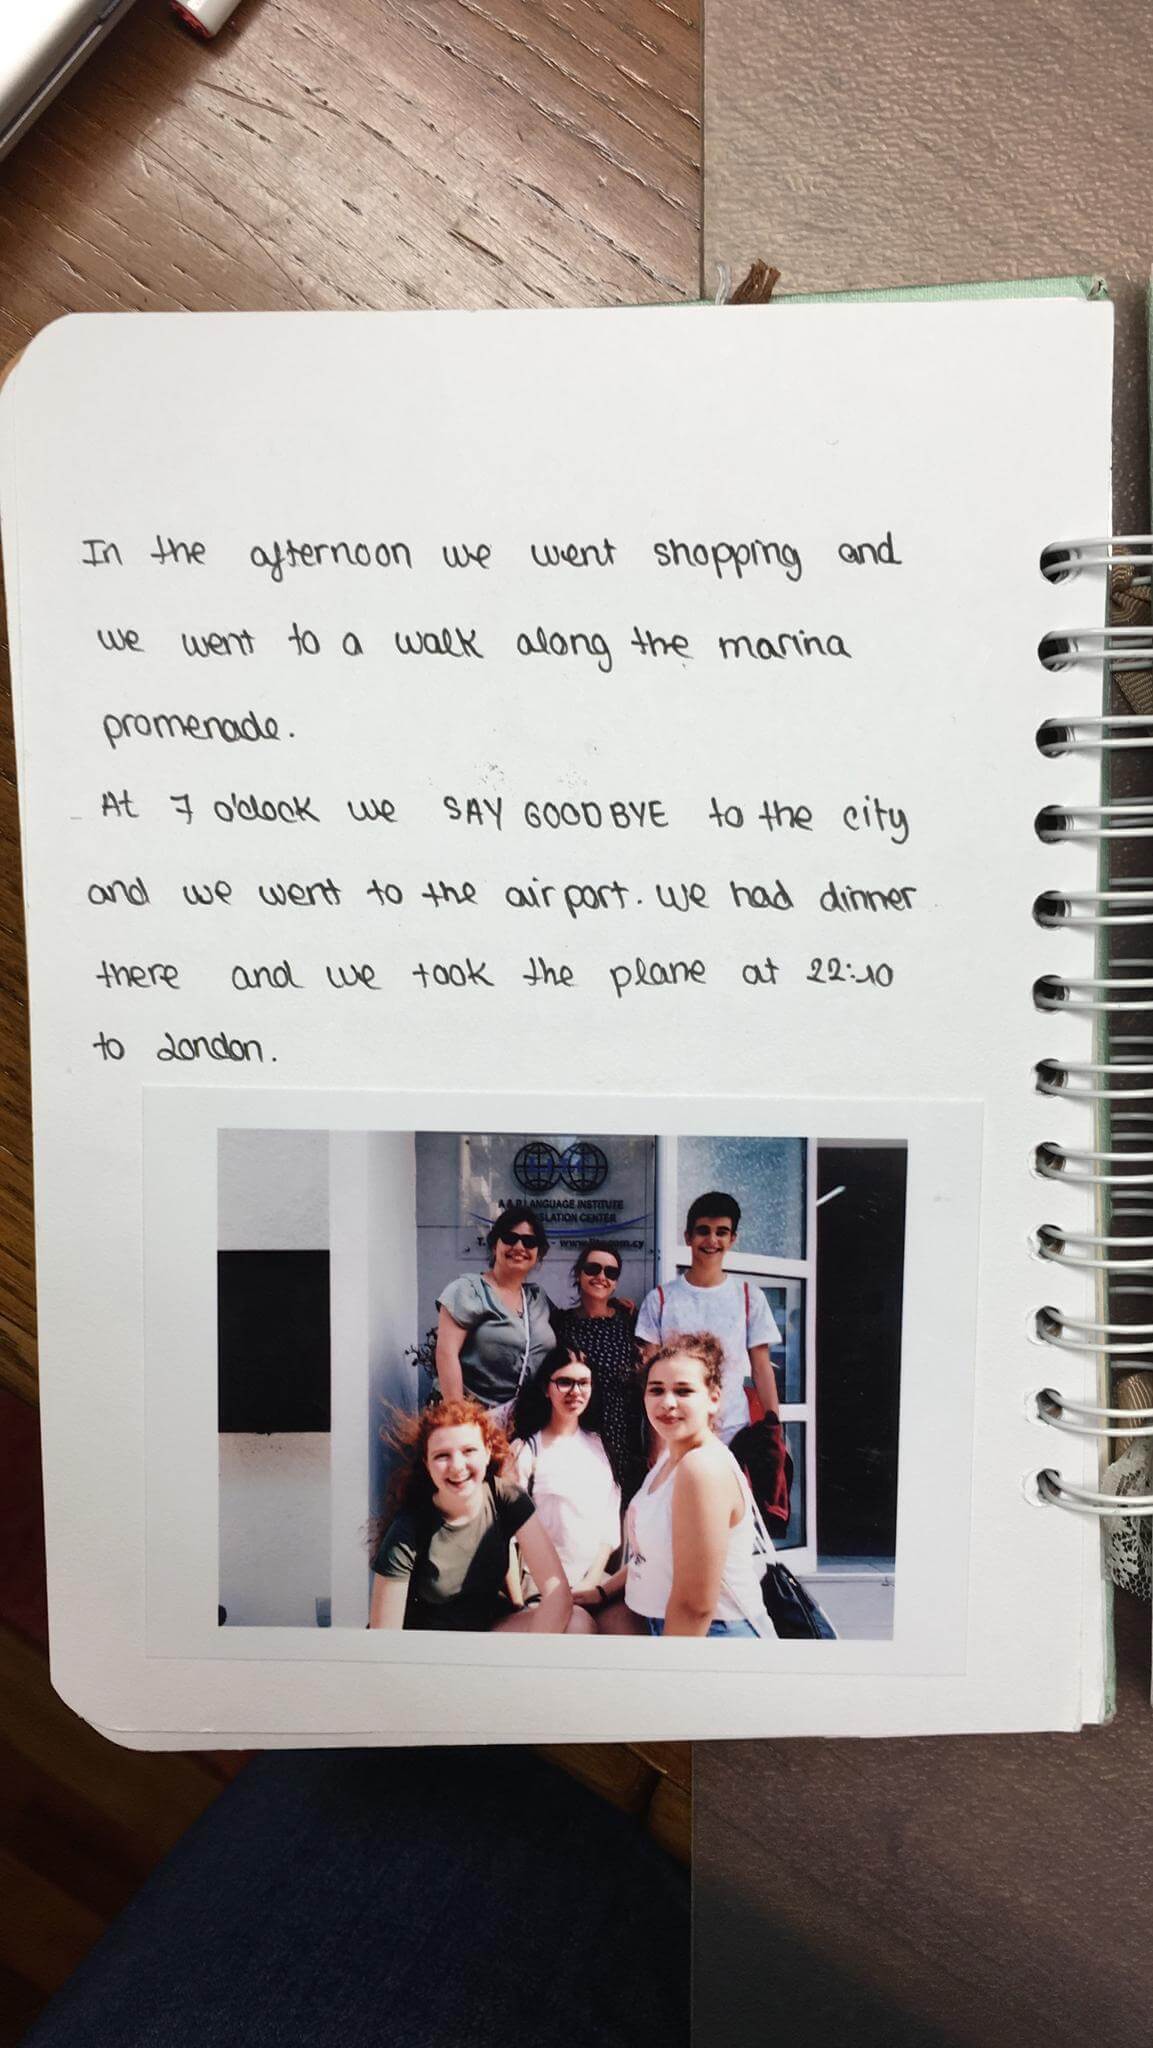 In the afternoon we went shopping and
we went to a walk along the marina
promenade.
At 7 o'clock we SAY GOODBYE to the city
and we went to the airport. We had dinner
there and we took the plane at 22:10
to London.
LANGUAGE INSTITUTE
CENTER